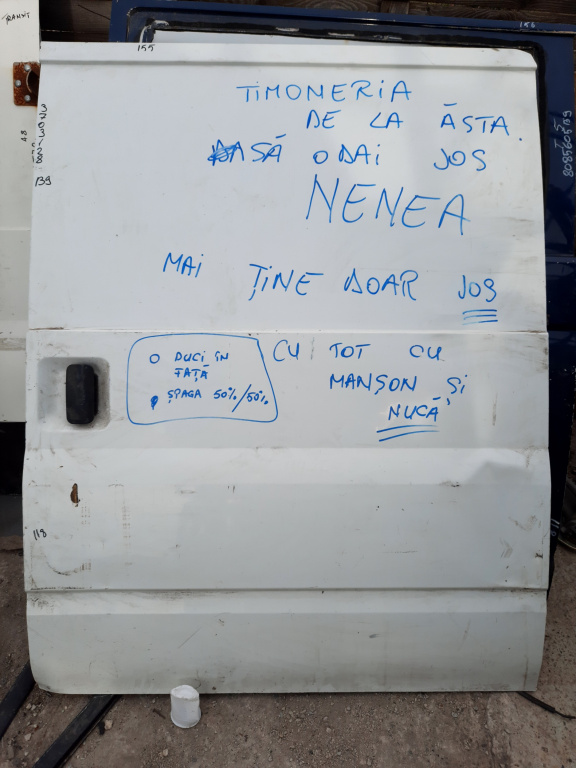 TRANSIT
155
156
TIMONERIA
DE LA ĂSTA.
SĂ O DAI JOS
NENEA
139
MAI ȚINE DOAR JOS
O DUCI ÎN
FAȚĂ
ȘPAGA 50%/50%
CU TOT CU
MANȘON ȘI
NUCĂ
118